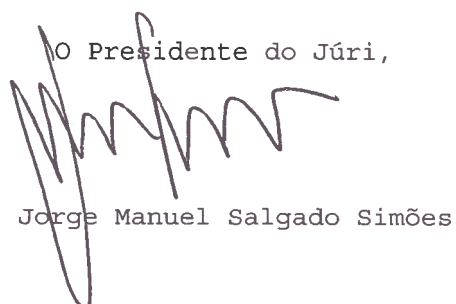 O Presidente do Júri,
Jorge Manuel Salgado Simões